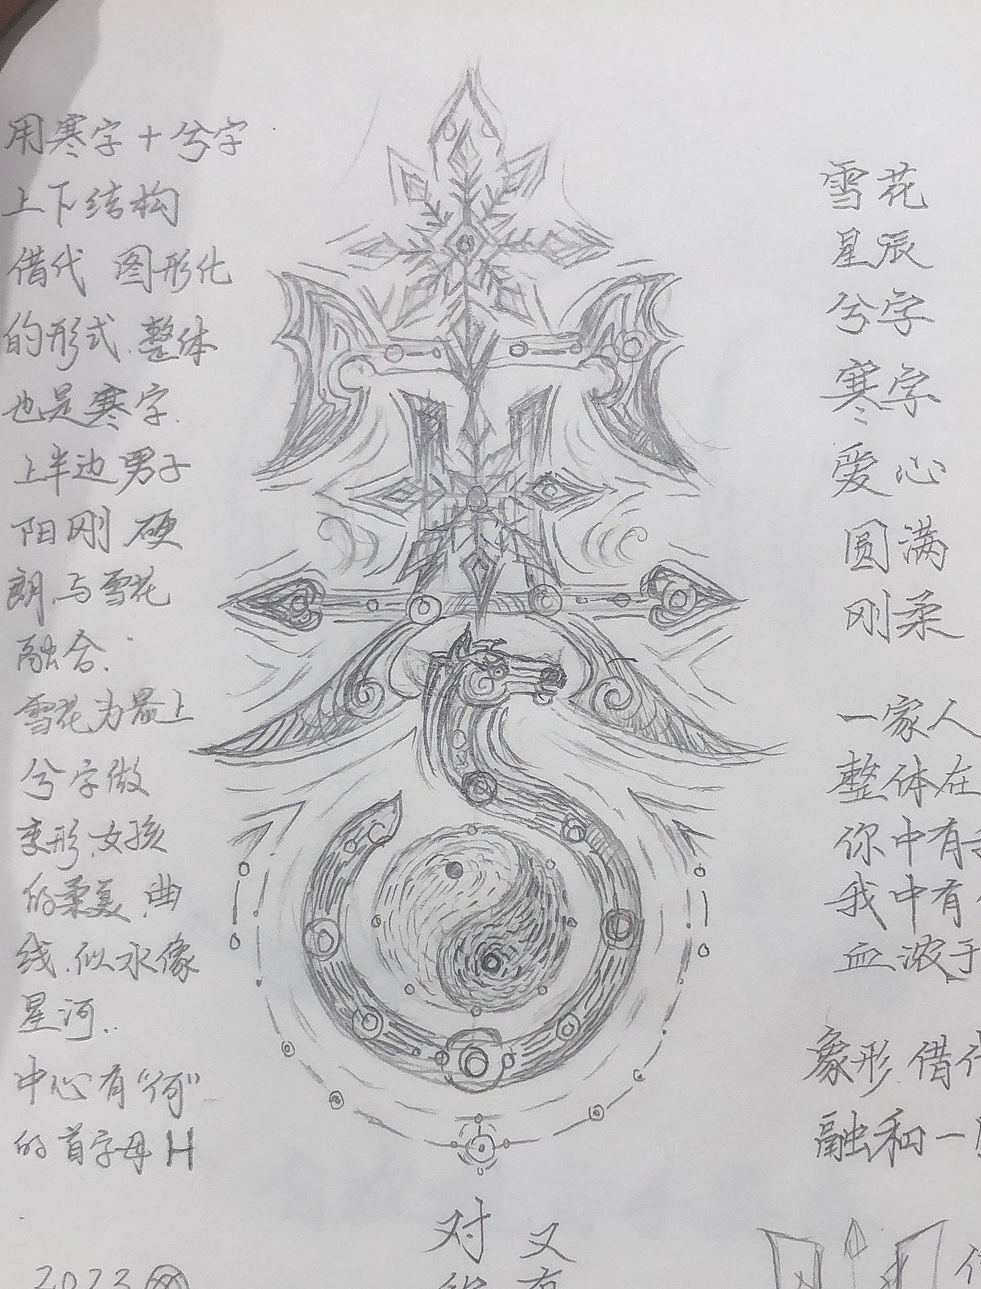 用寒字+兮字
上下结构
借代 图形化
的形式.整体
也是寒字.
上半边男子
阳刚 硬
朗.与雪花
融合.
雪花为最上
兮字做
变形.女孩
的柔美.曲
线.似水像
星河..
中心有“何”
的首字母H
2023
雪花
星辰
兮字
寒字
爱心
圆满
刚柔
一家人
整体在
你中有
我中有
血浓于
象形.借
融和一
对
又